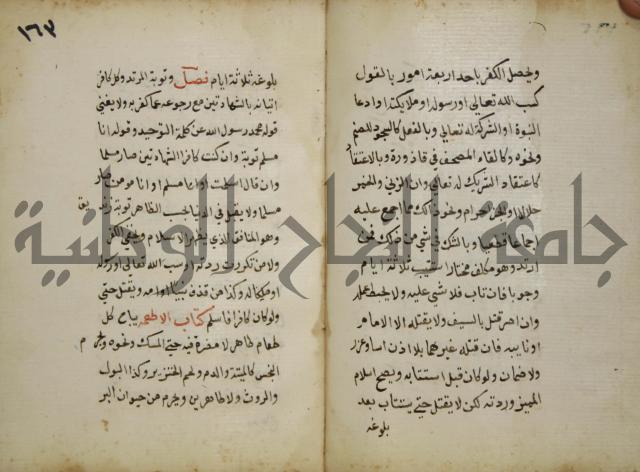 ويحصل الكفر باحد اربعة امور بالقول
كسب الله تعالى او رسوله او ملايكته او ادعا
النبوة او الشركة له تعالى وبالفعل كالسجود للصنم
ونحوه وكالقاء المصحف في قاذورة وبالاعتقاد
كاعتقاد الشريك له تعالى وان الزنى والخمر
حلال او الخبز حرام ونحو ذلك مما اجمع عليه
اجماعا قطعيا وبالشك في شي من ذلك فمن
ارتد وهو مكلف مختارا استتيب ثلاثة ايام
وجوبا فان تاب فلا شي عليه ولا يحبط عمله
وان اصر قتل بالسيف ولا يقتله الا الامام
او نايبه فان قتله غيرهما بلا اذن اسا وعزر
ولا ضمان ولو كان قبل استتابه ويصح اسلام
المميز وردته لكن لا يقتل حتى يستتاب بعد
بلوغه
١٦٣
بلوغه ثلاثة ايام فصل وتوبة المرتد وكل كافر
اتيانه بالشهادتين مع رجوعه عما كفر به ولا يغني
قوله محمد رسول الله عن كلمة التوحيد وقوله انا
مسلم توبة وان كتب كافر الشهادتين صار مسلما
وان قال اسلمت او انا مسلم او انا مومن صار
مسلما ولا يقبل في الدنيا بحسب الظاهر توبة زنديق
وهو المنافق الذي يظهر الاسلام ويخفي الكفر
ولا من تكررت ردته او سب الله تعالى او رسوله
او ملكا له وكذا من قذف نبيا او امه ويقتل حتى
ولو كان كافرا فاسلم كتاب الاطعمه يباح كل
طعام طاهر لا مضرة فيه حتى المسك ونحوه ويحرم
النجس كالميتة والدم ولحم الخنزير وكذا البول
والروث ولو طاهرين ويحرم من حيوان البر
جامعة النجاح الوطنية